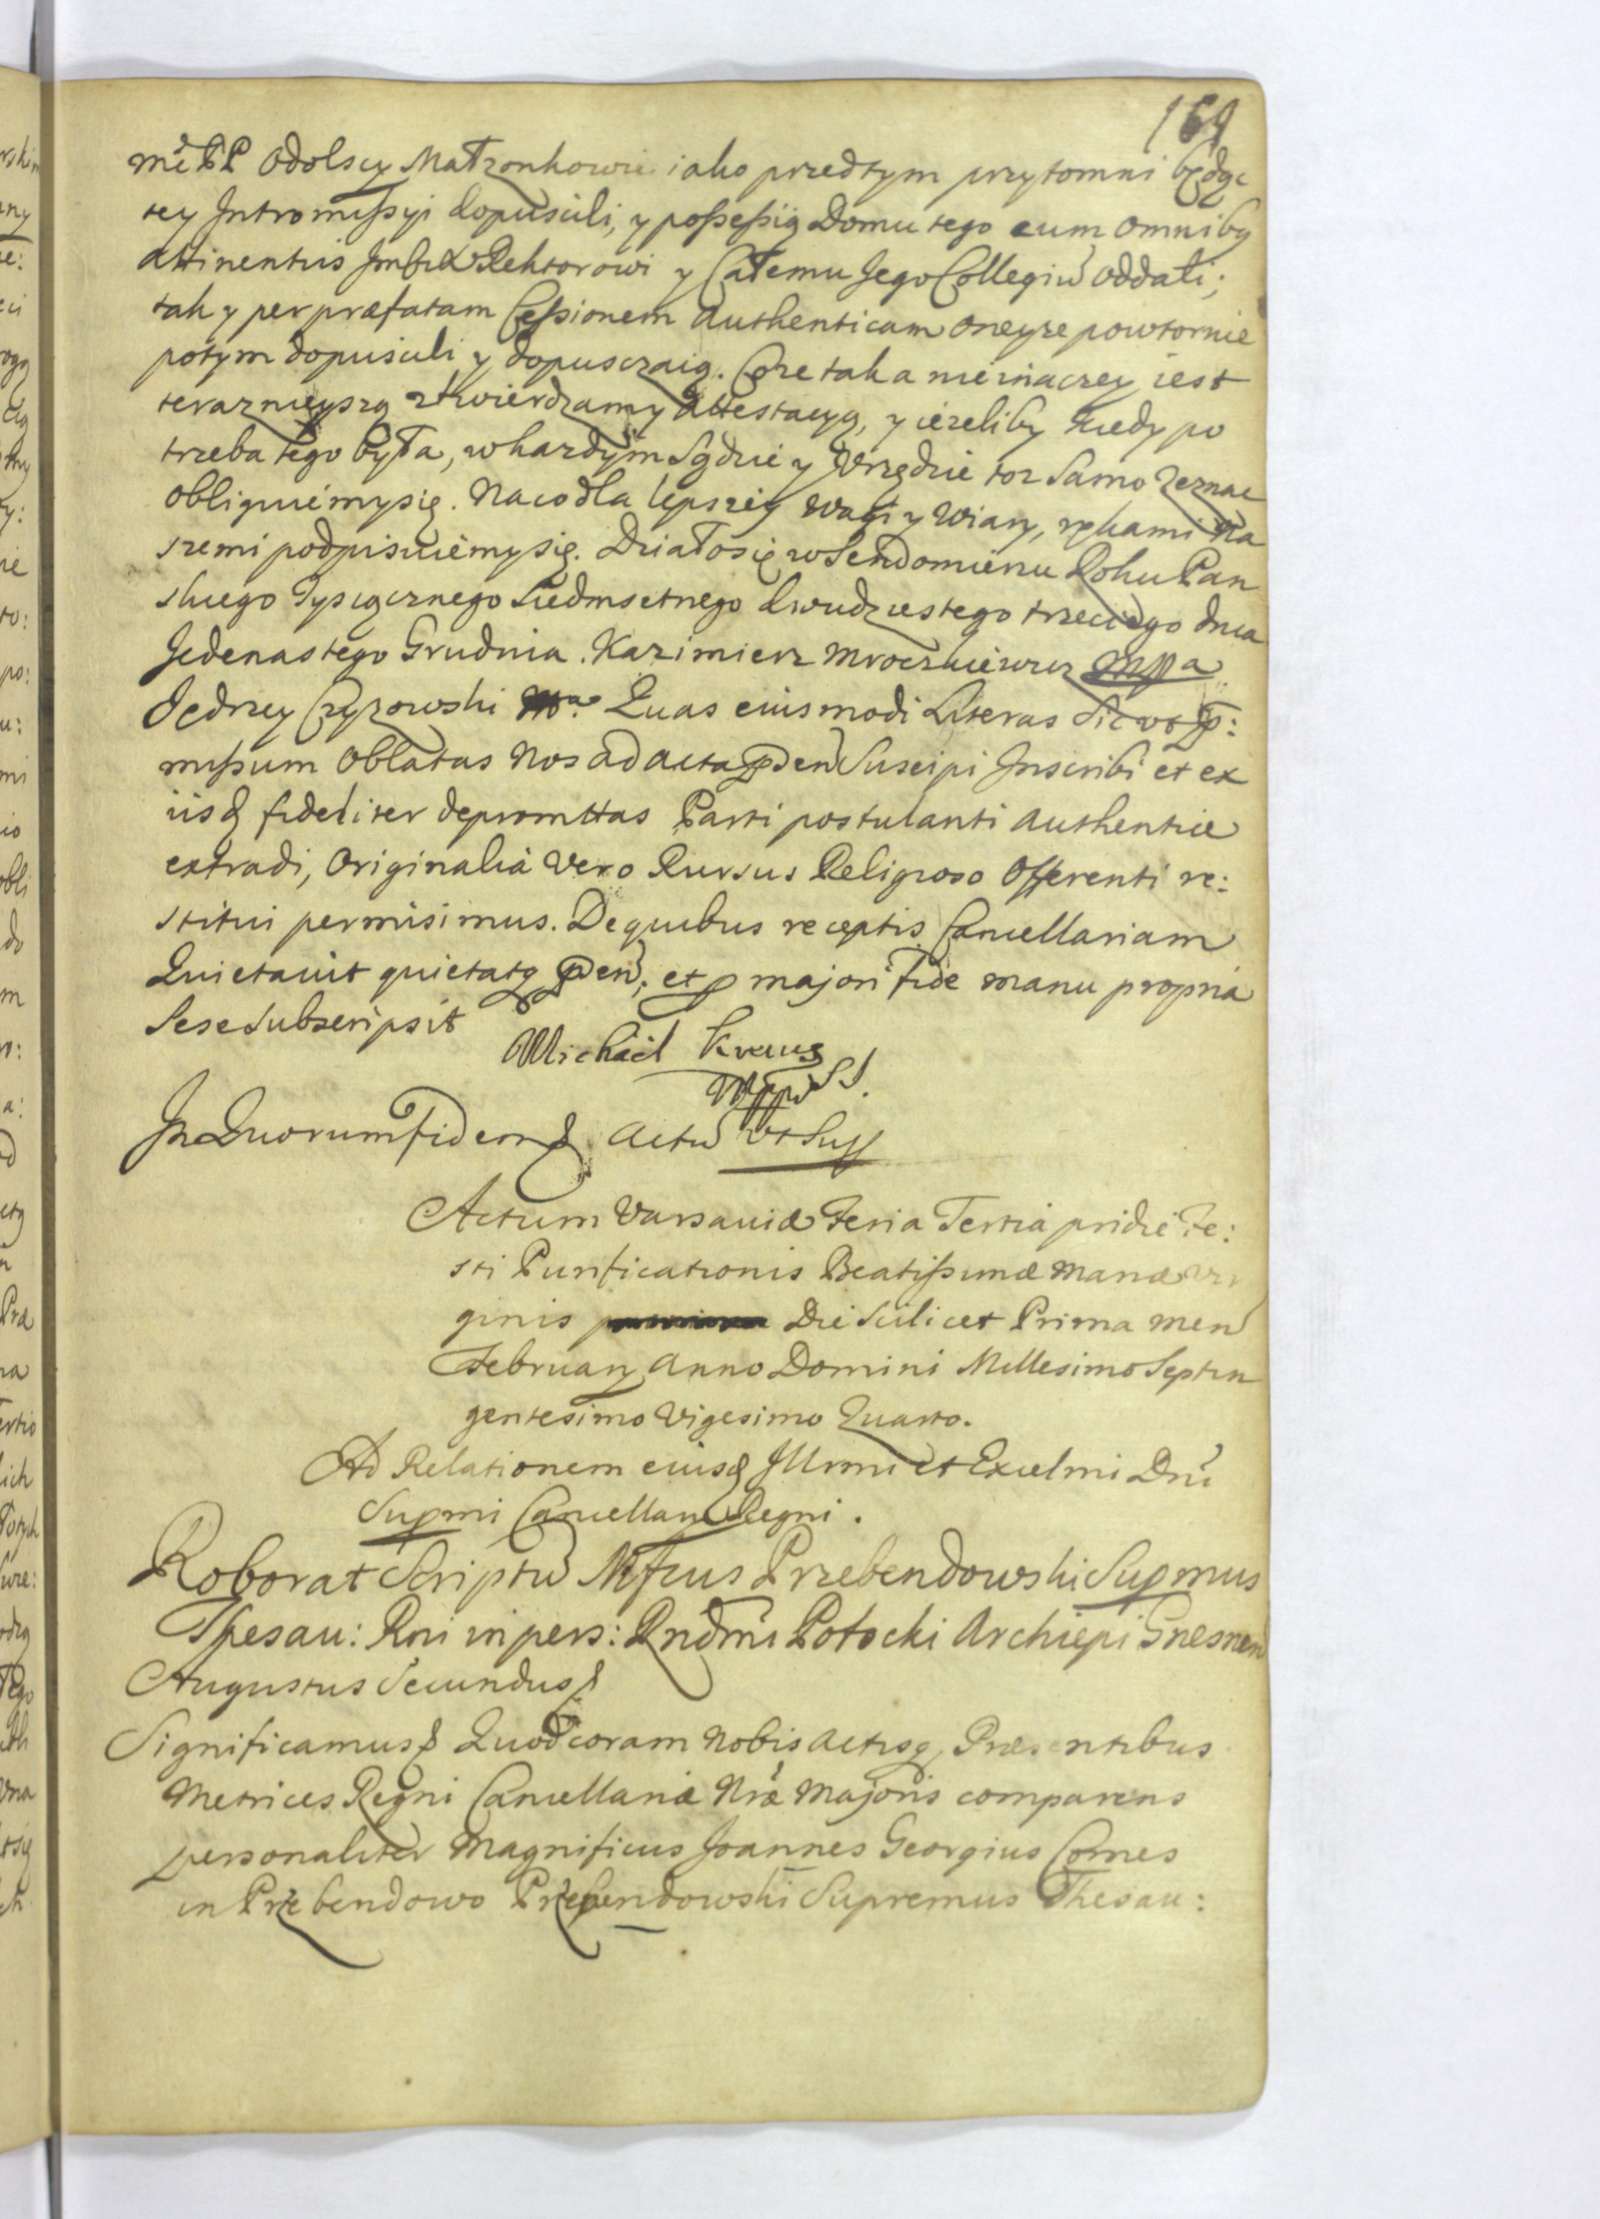 169
mć PP Odolscy Małzonkowie iako przedtym przytomni będąc
tey Intromissyi dopuscili, y possessią Domu tego cum omnibq
attinentiis Rektorowi y Całemu Jego Collegiu oddali;
tak y per præfatam Cessionem Authenticam oneyze powtornie
potym dopuscili y dopusczaią. Co ze tak a nieinaczey iest
teraznieyszą ztwierdzamy Attestacyą, y iezeliby kiedy po
trzeba tego była, w kazdym Sądzie y Vrzędzie toz Samo Zeznac
obliguiemysię. Naco dla lepszey Wagi y Wiary, rękami Na
szemi podpisuiemysię. Działosię w Sendomierzu Roku Pan
skiego Tysiącznego Siedmsetnego dwudziestego trzeciego dnia
Jedenastego Grudnia. Kazimierz Mroczkiewicz Mppa
Jędrzey Czyzowski Mpa. Quas eiusmodi Literas Sic ut p:
missum Oblatas Nos ad Acta pden Suscipi Inscribi et ex
iisq fideliter depromttas Parti postulanti Authentice
extradi, Originalia Vero Rursus Religioso Offerenti re:
stitui permisimus. De quibus receptis Cancellariam
Quietavit quietatq pden, et p majori fide manu propria
Sese Subscripsit
Michäel Kraus
Mppa SJ.
In Quorum fidem & Actu ut Sup
Actum Varsaviæ Feria Tertia pridie Fe:
sti Purificationis Beatissimæ Mariæ Vir
ginis Die Scilicet Prima Men
February Anno Domini Millesimo Septin
gentesimo Vigesimo Quarto.
Ad Relationem eiusd Illrmi et Excelmi Dni
Supmi Cancellary Regni.
Roborat Scriptu Mfcus Przebendowski Supmus
Thesau: Rni in pers: Rndmi Potocki Archiepi Gnesnen
Augustus Secundus &
Significamus & Quod coram Nobis Actisq Præsentibus
Metrices Regni Cancellariæ Nræ Majoris comparens
personaliter Magnificus Joannes Georgius Comes
in Przebendowo Przebendowski Supremus Thesau: